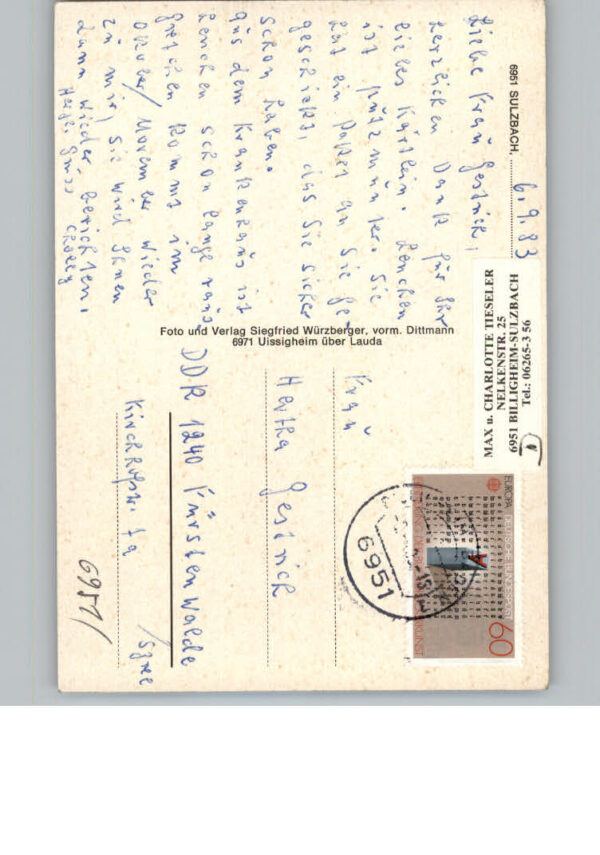 6951 SULZBACH, 6.9.83
Liebe Frau Gestrich,
herzlichen Dank für Ihr
liebes Kärtlein. Lenchen
ist putzmunter. Sie
hat ein Paket an Sie ge
schickt, das Sie sicher
schon haben.
Aus dem Krankenhaus ist
Lenchen schon lange raus
Gretchen kommt im
Oktober/November wieder
zu mir, sie wird Ihnen
dann wieder berichten.
Herzl. Gruss
Foto und Verlag Siegfried Würzberger, vorm. Dittmann
6971 Uissigheim über Lauda
MAX u. CHARLOTTE TIESELER
NELKENSTR. 25
6951 BILLIGHEIM-SULZBACH
Tel.: 06265-3 56
EUROPA DEUTSCHE BUNDESPOST
60
6951
Frau
Hertha Gestrich
DDR 1240 Fürstenwalde
/Spree
Kirchhofstr.
6951/